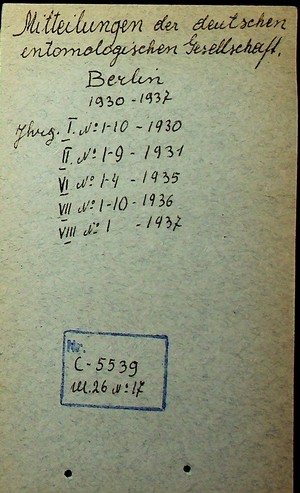 Mitteilungen der deutschen
entomologischen Gesellschaft.
Berlin
1930-1937
Jhrg. I. № 1-10 - 1930
II. № 1-9 - 1931
VI № 1-4 - 1935
VII № 1-10 - 1936
VIII № 1 - 1937
Nr.
C-5539
26 № 17